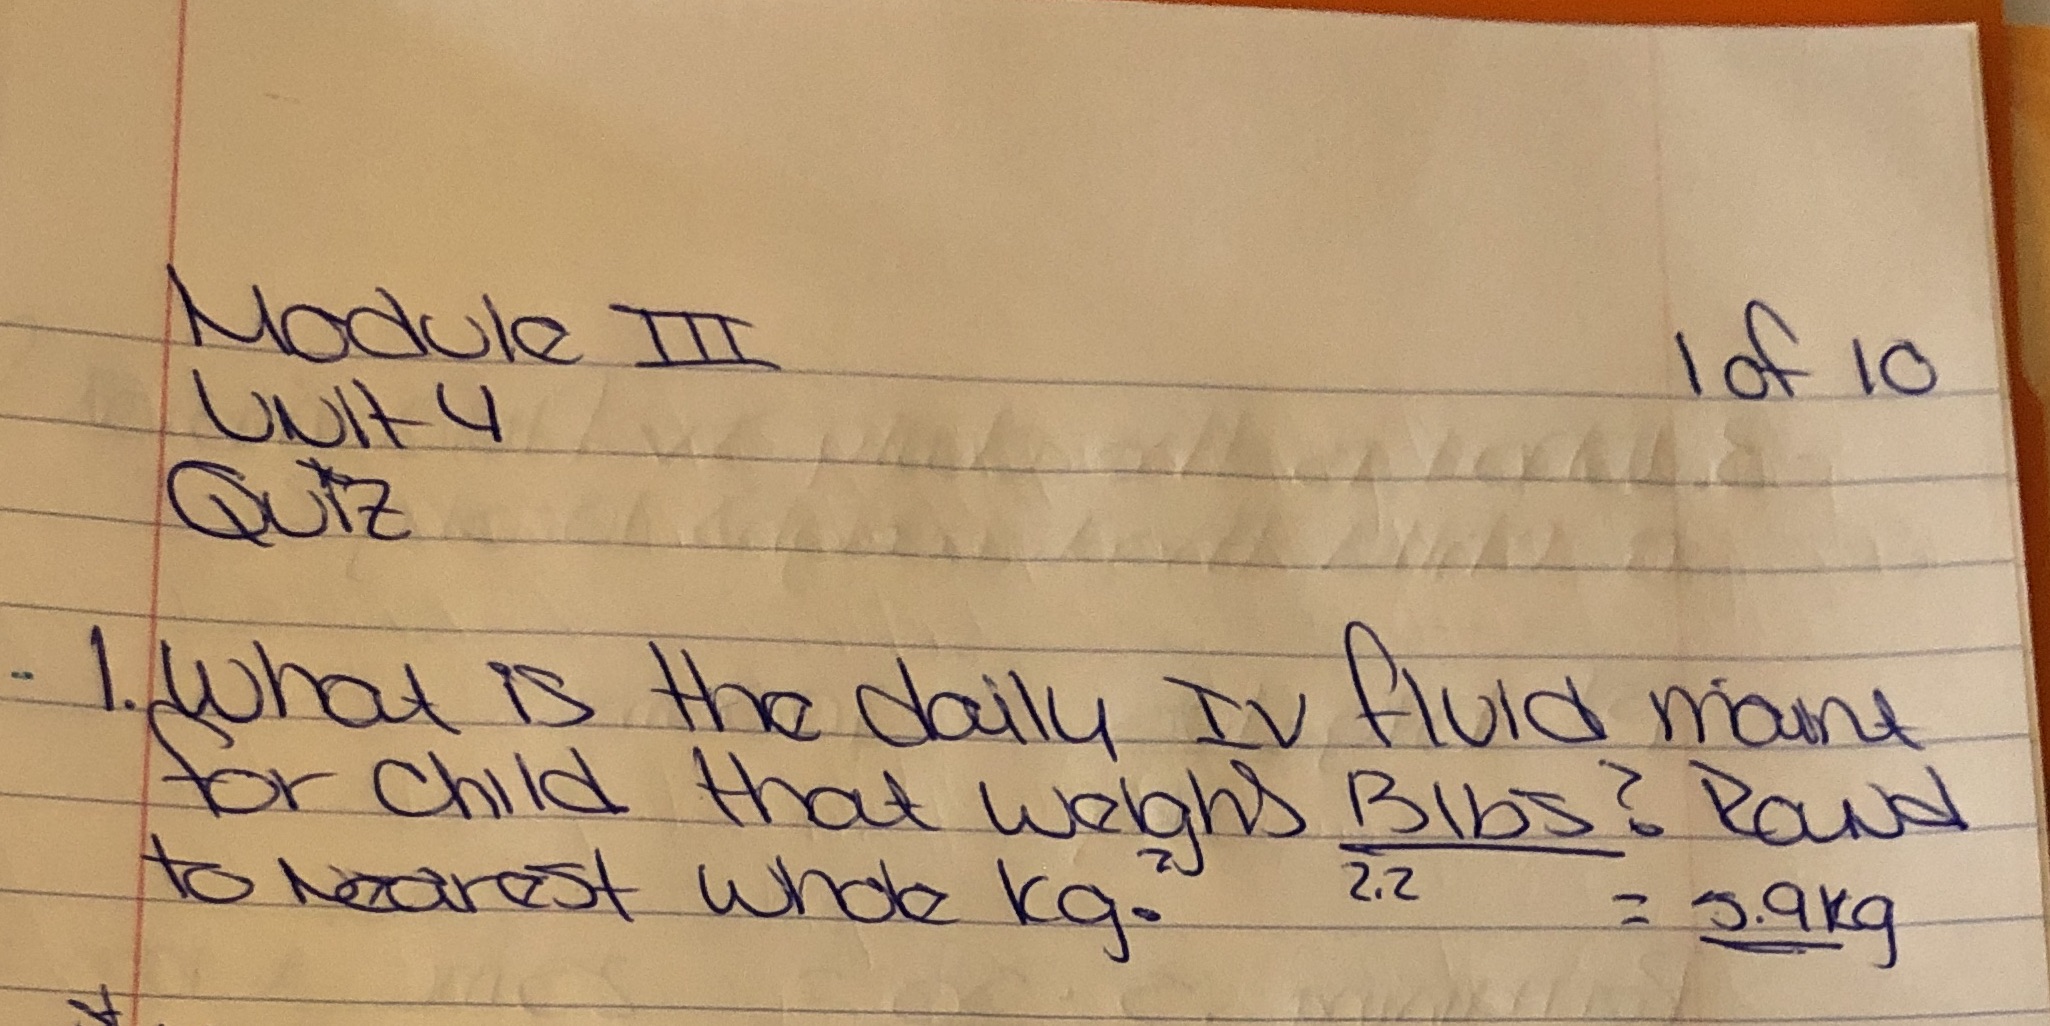 Module III
1 of 10
Unit 4
Quiz
1. What is the daily IV fluid maint
for child that weighs 13lbs? Round
to nearest whole kg.?
2.2
= 5.9kg